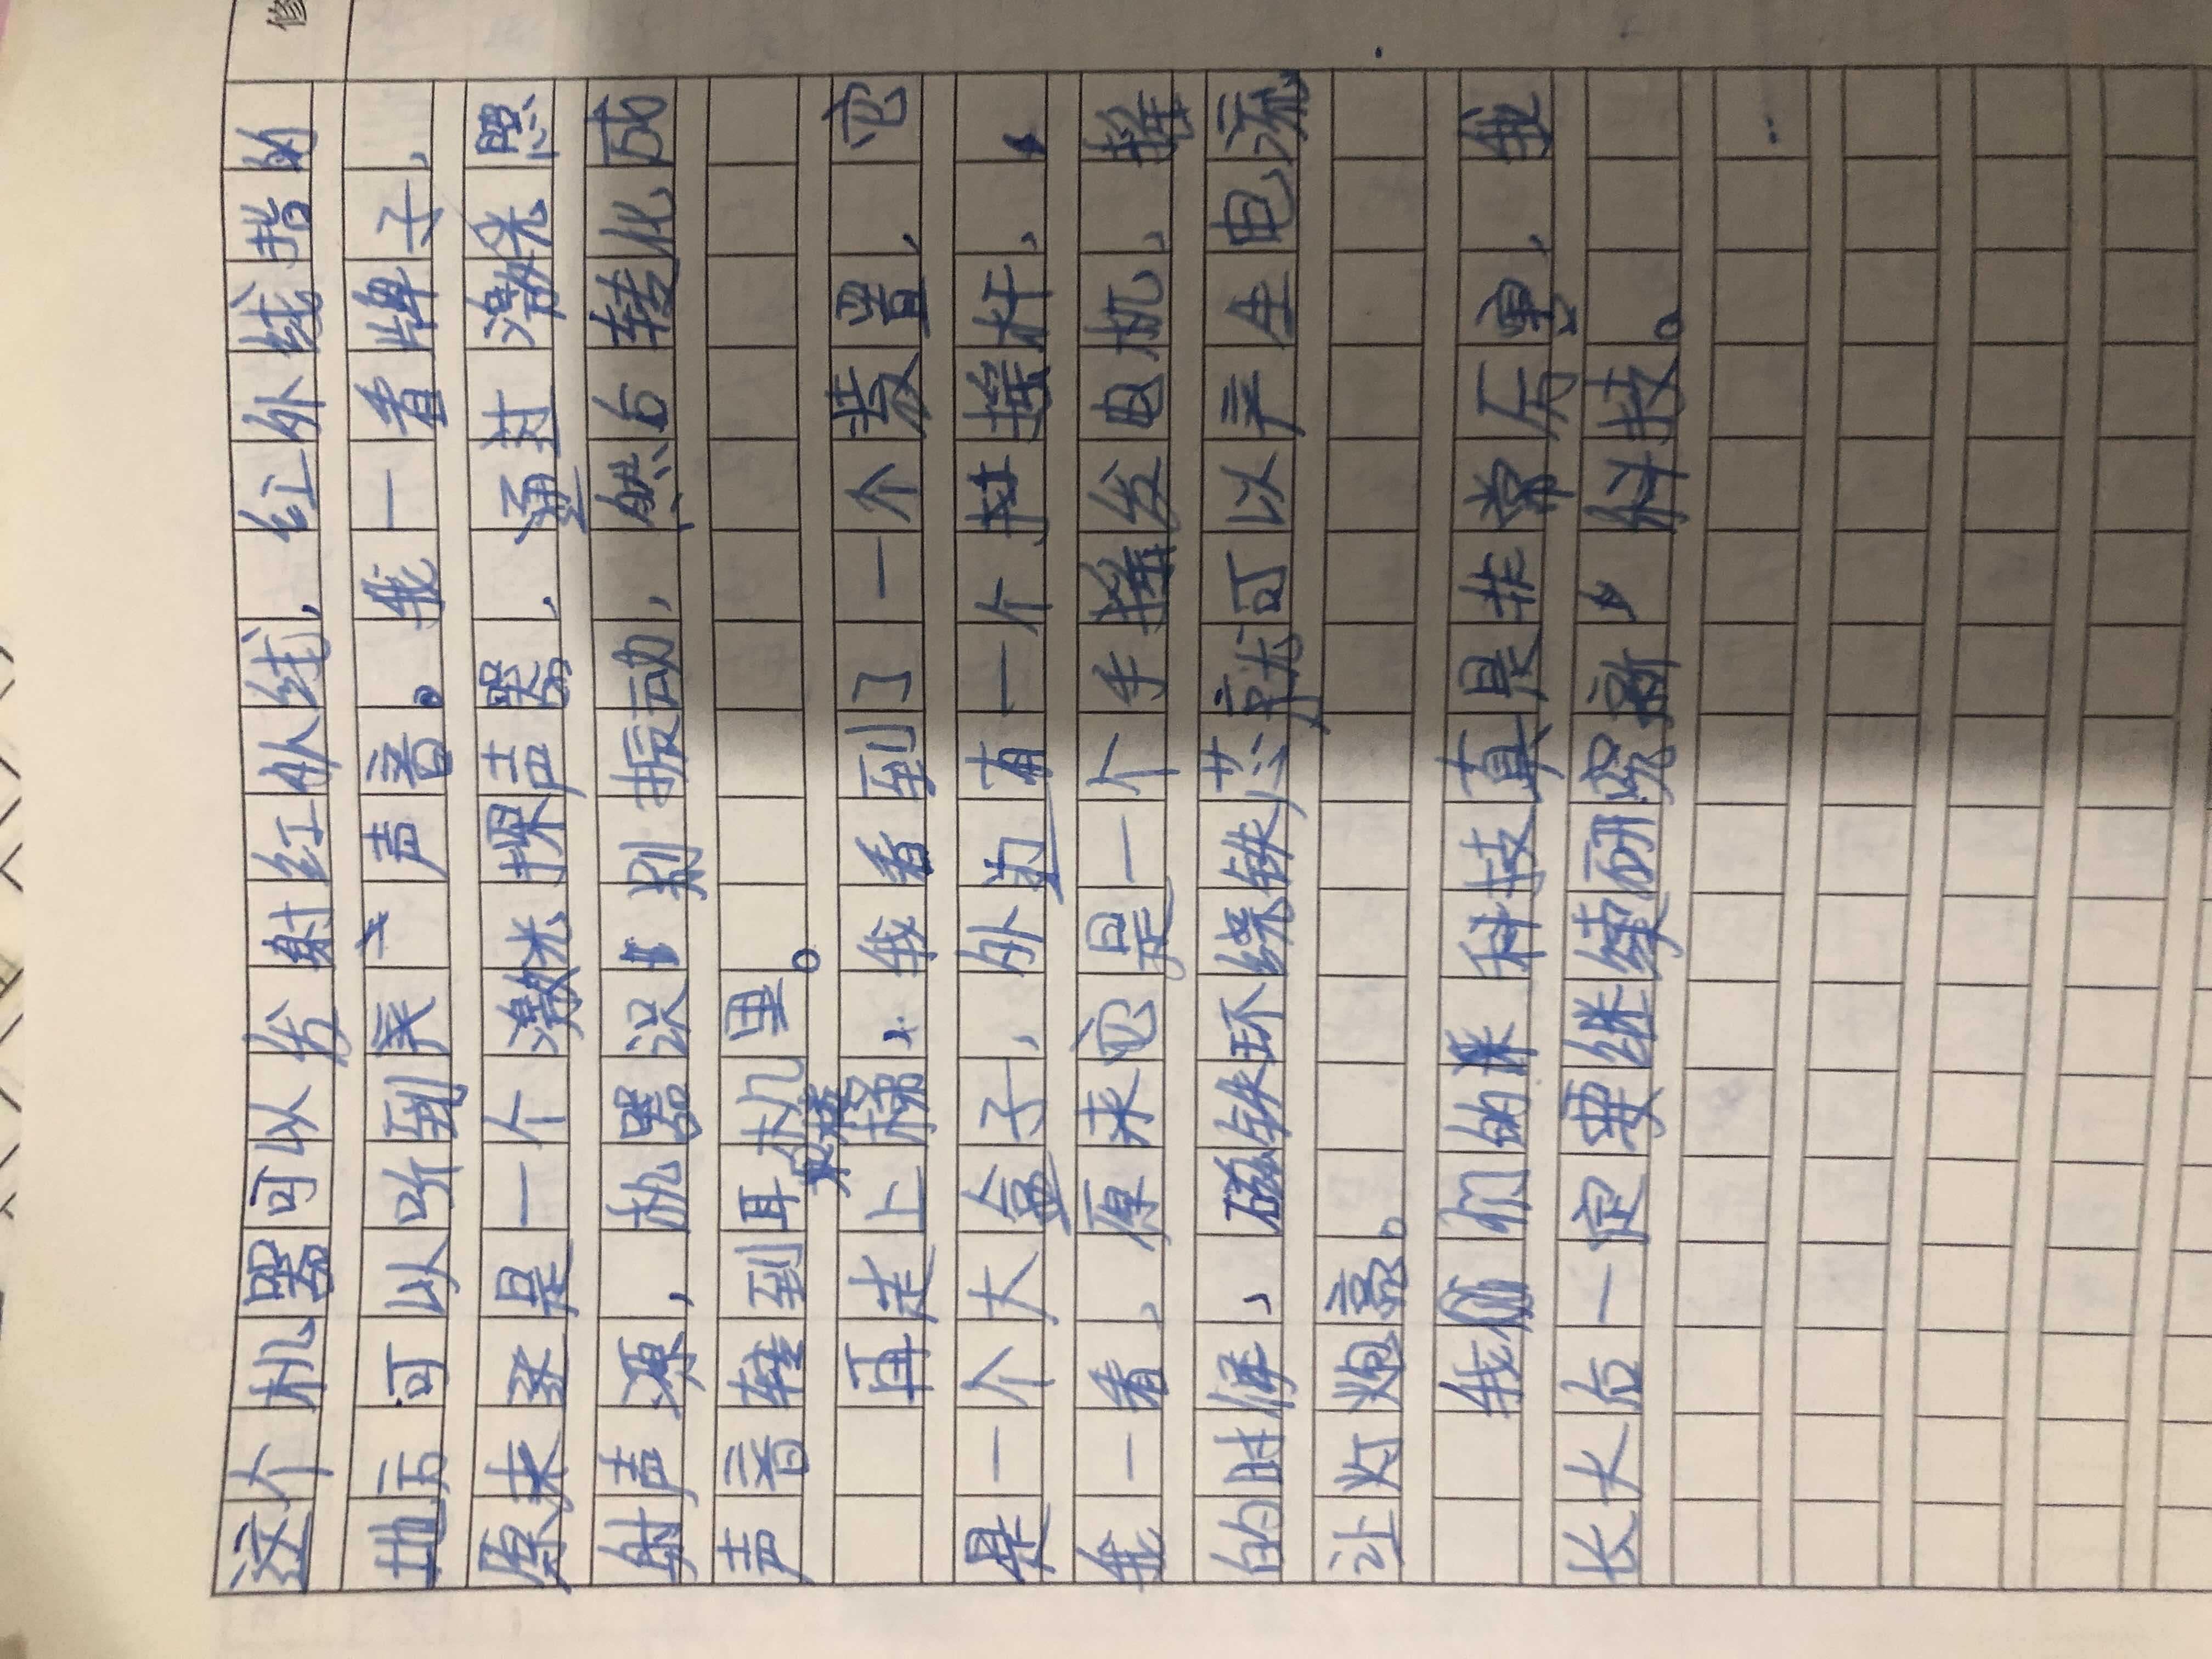 修
这个机器可以发射红外线，红外线指的
地方可以听到声音。我一看牌子，
原来是一个激光探声器，通过激光照
射声源，机器识别振动，然后转化成
声音转到耳机里。
再走上楼梯，我看到了一个装置，它
是一个大盒子，外边有一个挂摇杆，
我一看，原来它是一个手摇发电机，摇
的时候，磁铁环绕铁芯就可以产生电流
让灯炮亮。
我们的科技真是非常厉害，我
长大后一定要继续研究科技。